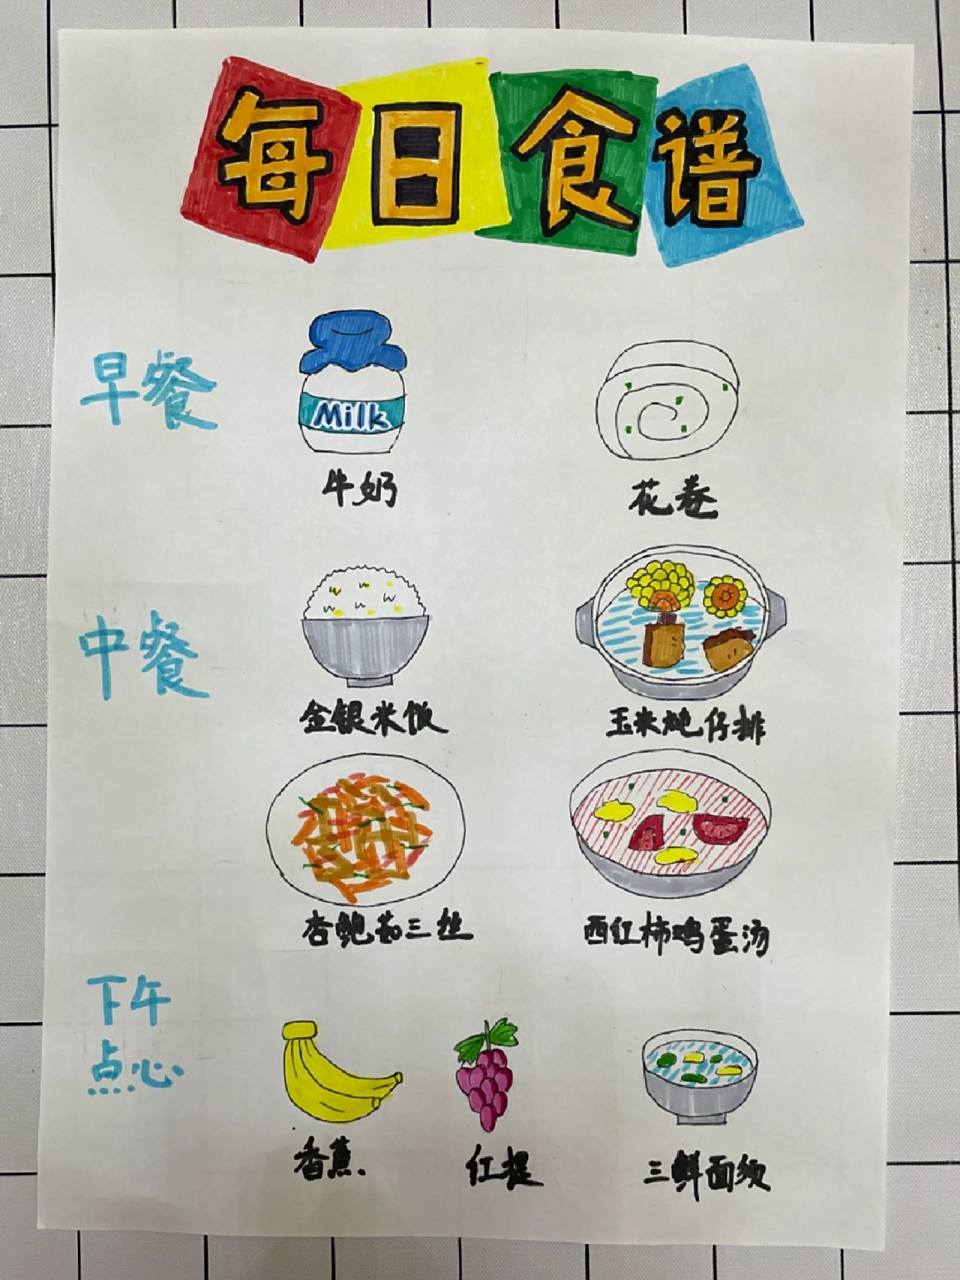 每日食谱
早餐
Milk
牛奶
花卷
中餐
金银米饭
玉米炖仔排
杏鲍茹三丝
西红柿鸡蛋汤
下午
点心
香蕉
红提
三鲜面须